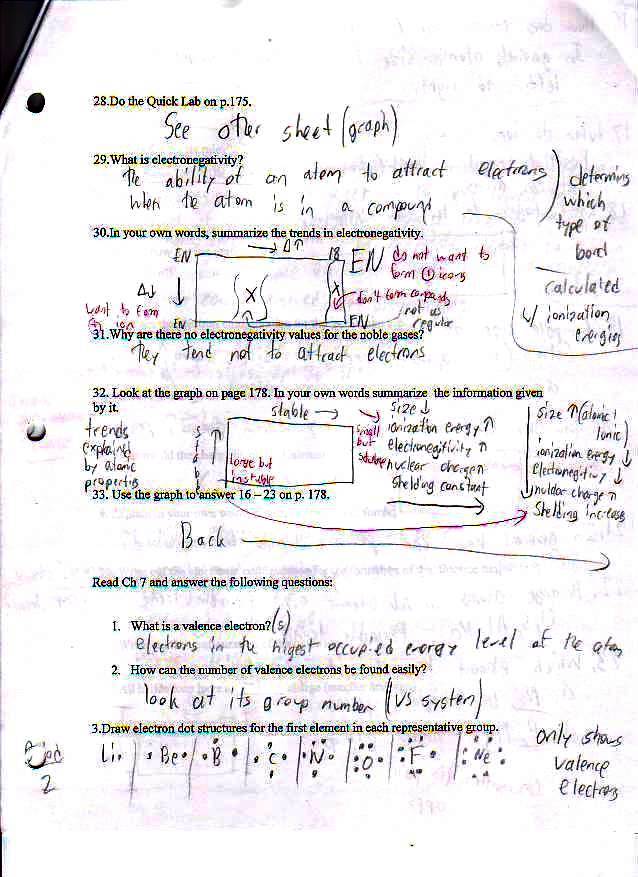 28.Do the Quick Lab on p.175.
See other sheet (graph)
29.What is electronegativity?
The ability of an atom to attract electrons
when the atom is in a compound
determins
which
type of
bond
calculated
w/ ionization
energies
30.In your own words, summarize the trends in electronegativity.
→ Δ↑
EN 18 EN
do not want to
form + icons
Δ↓ ↓ X X
don't form compounds
want to form
ion
EN EN
not as
regular
31.Why are there no electronegativity values for the noble gases?
They tend not to attract electrons
32. Look at the graph on page 178. In your own words summarize the information given
by it.
stable →
trends
explained
by atomic
properties
stable ↑
large but
instable
small
but
stable
size ↓
ionization energy ↑
electronegitivity ↑
nuclear charge ↑
Shelding constant
Size ↑ (atomic &
ionic)
ionization energy ↓
electroneg-tivy ↓
nuclar charge ↑
Shelding increases
33. Use the graph to answer 16 – 23 on p. 178.
Back
Read Ch 7 and answer the following questions:
1. What is a valence electron?(s)
electrons in the higest occupied energy level of the atom
2. How can the number of valence electrons be found easily?
look at its group number (US system)
3.Draw electron dot structures for the first element in each representative group.
Period
2
Li Be B C N O F Ne
only shows
valence
electrons